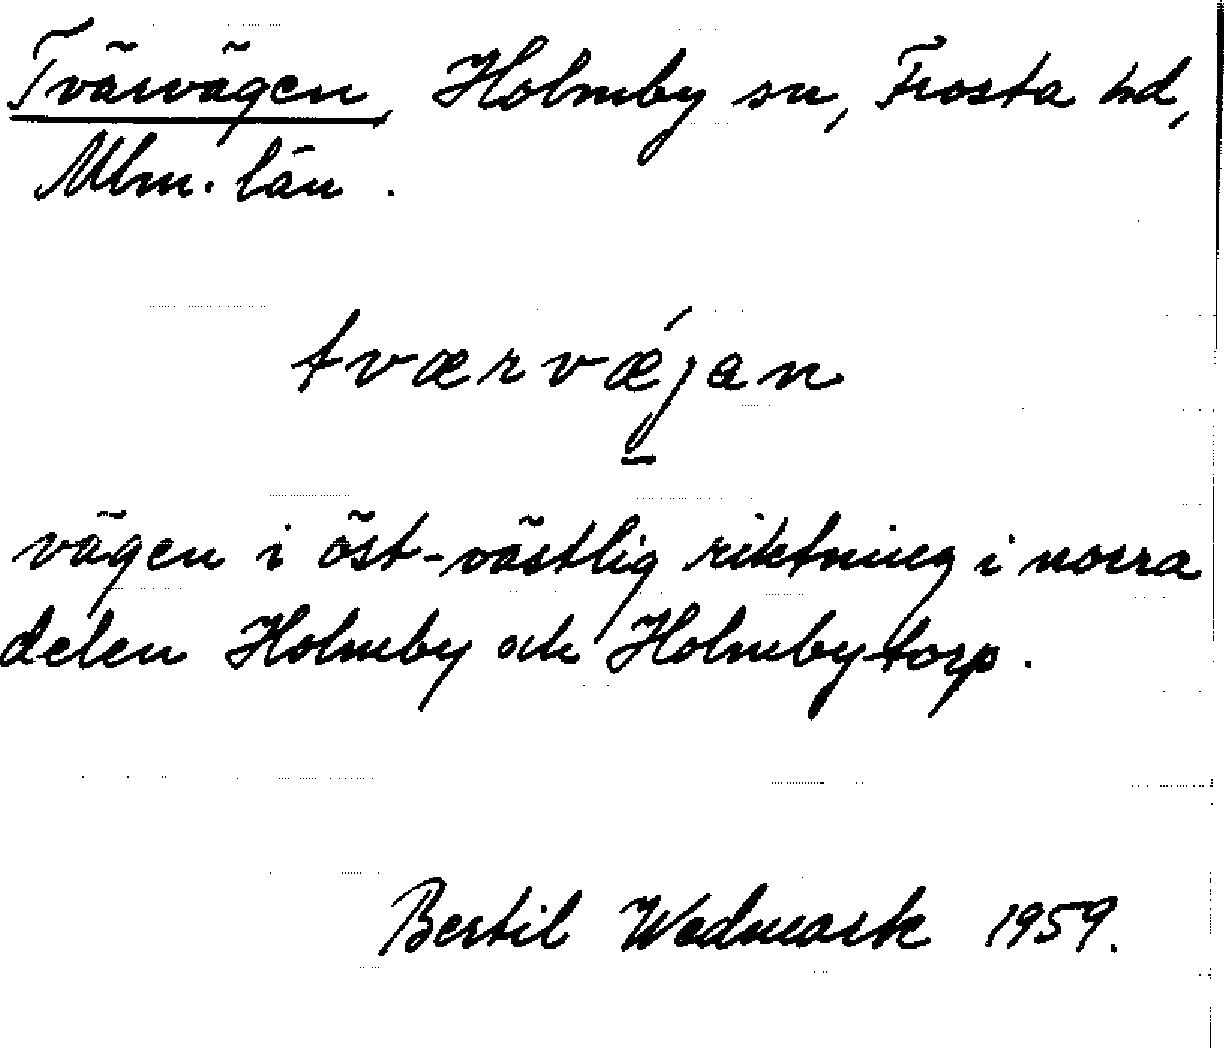 Tvärvägen, Holmby sn, Frosta hd,
Mlm. län.
tværvǽjan
vägen i öst-västlig riktning i norra
delen Holmby och Holmbytorp.
Bertil Wadmark 1959.